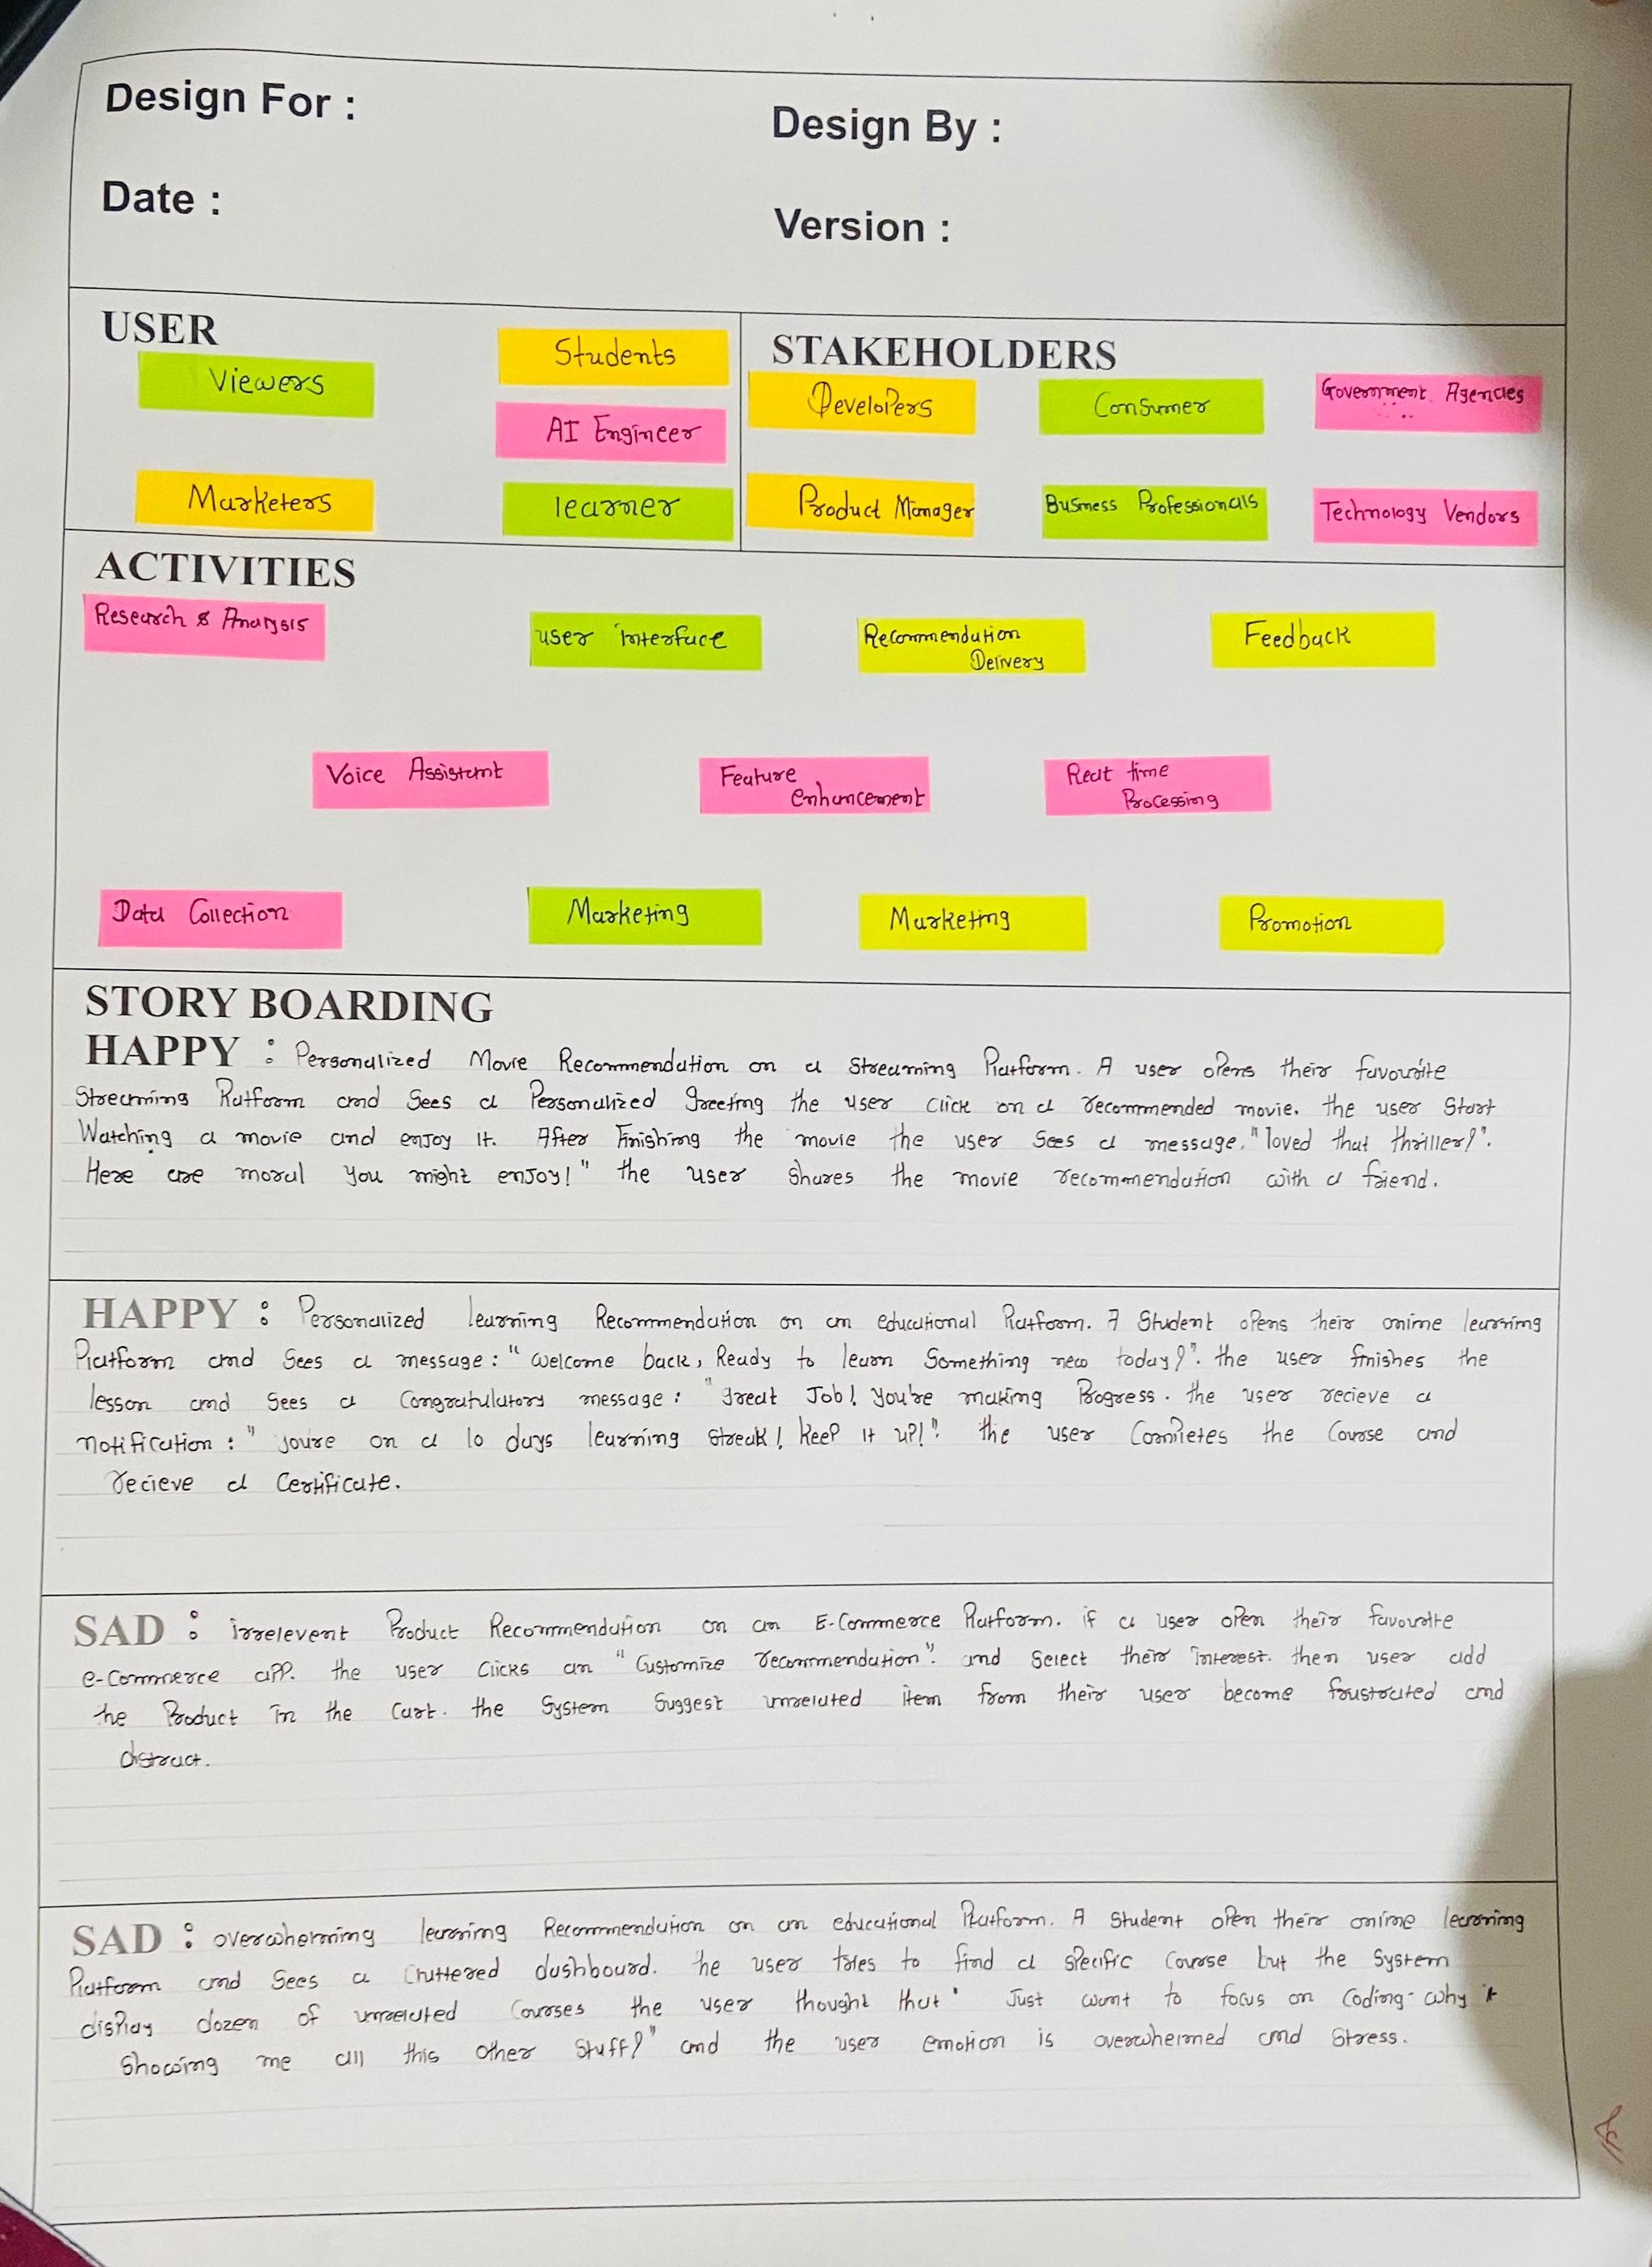 Design For :
Design By :
Date :
Version :
USER
Viewers
Students
AI Engineer
Marketers
learner
STAKEHOLDERS
Developers
Consumer
Government Agencies
Product Manager
Business Professionals
Technology Vendors
ACTIVITIES
Research & Analysis
user interface
Recommendation
Delivery
Feedback
Voice Assistant
Feature
enhancement
Real time
Processing
Data Collection
Marketing
Marketing
Promotion
STORY BOARDING
HAPPY : Personalized Movie Recommendation on a Streaming Platform. A user opens their favourite
Streaming Platform and sees a Personalized Greeting the user click on a recommended movie. the user Start
Watching a movie and enjoy it. After Finishing the movie the user sees a message. "loved that thriller?".
Here are moral you might enjoy!" the user shares the movie recommendation with a friend.
HAPPY : Personalized learning Recommendation on an educational Platform. A Student opens their online learning
Platform and sees a message: "welcome back, Ready to learn Something new today?". the user finishes the
lesson and sees a Congratulatory message: "great Job! you're making Progress. the user recieve a
notification: " youre on a 10 days learning streak! keep it up!". the user Completes the Course and
recieve a Certificate.
SAD : irrelevent Product Recommendation on an E-Commerce Platform. if a user open their favourite
e-Commerce app. the user clicks an "Customize recommendation". and Select their interest. then user add
the Product in the Cart. the System Suggest unrelated item from their user become frustrated and
distract.
SAD : overwhelming learning Recommendation on an educational Platform. A Student open their online learning
Platform and sees a Cluttered dashboard. he user tries to find a specific Course but the System
display dozen of unrelated Courses the user thought that " Just want to focus on Coding- why it
Showing me all this other Stuff?" and the user emotion is overwhelmed and Stress.